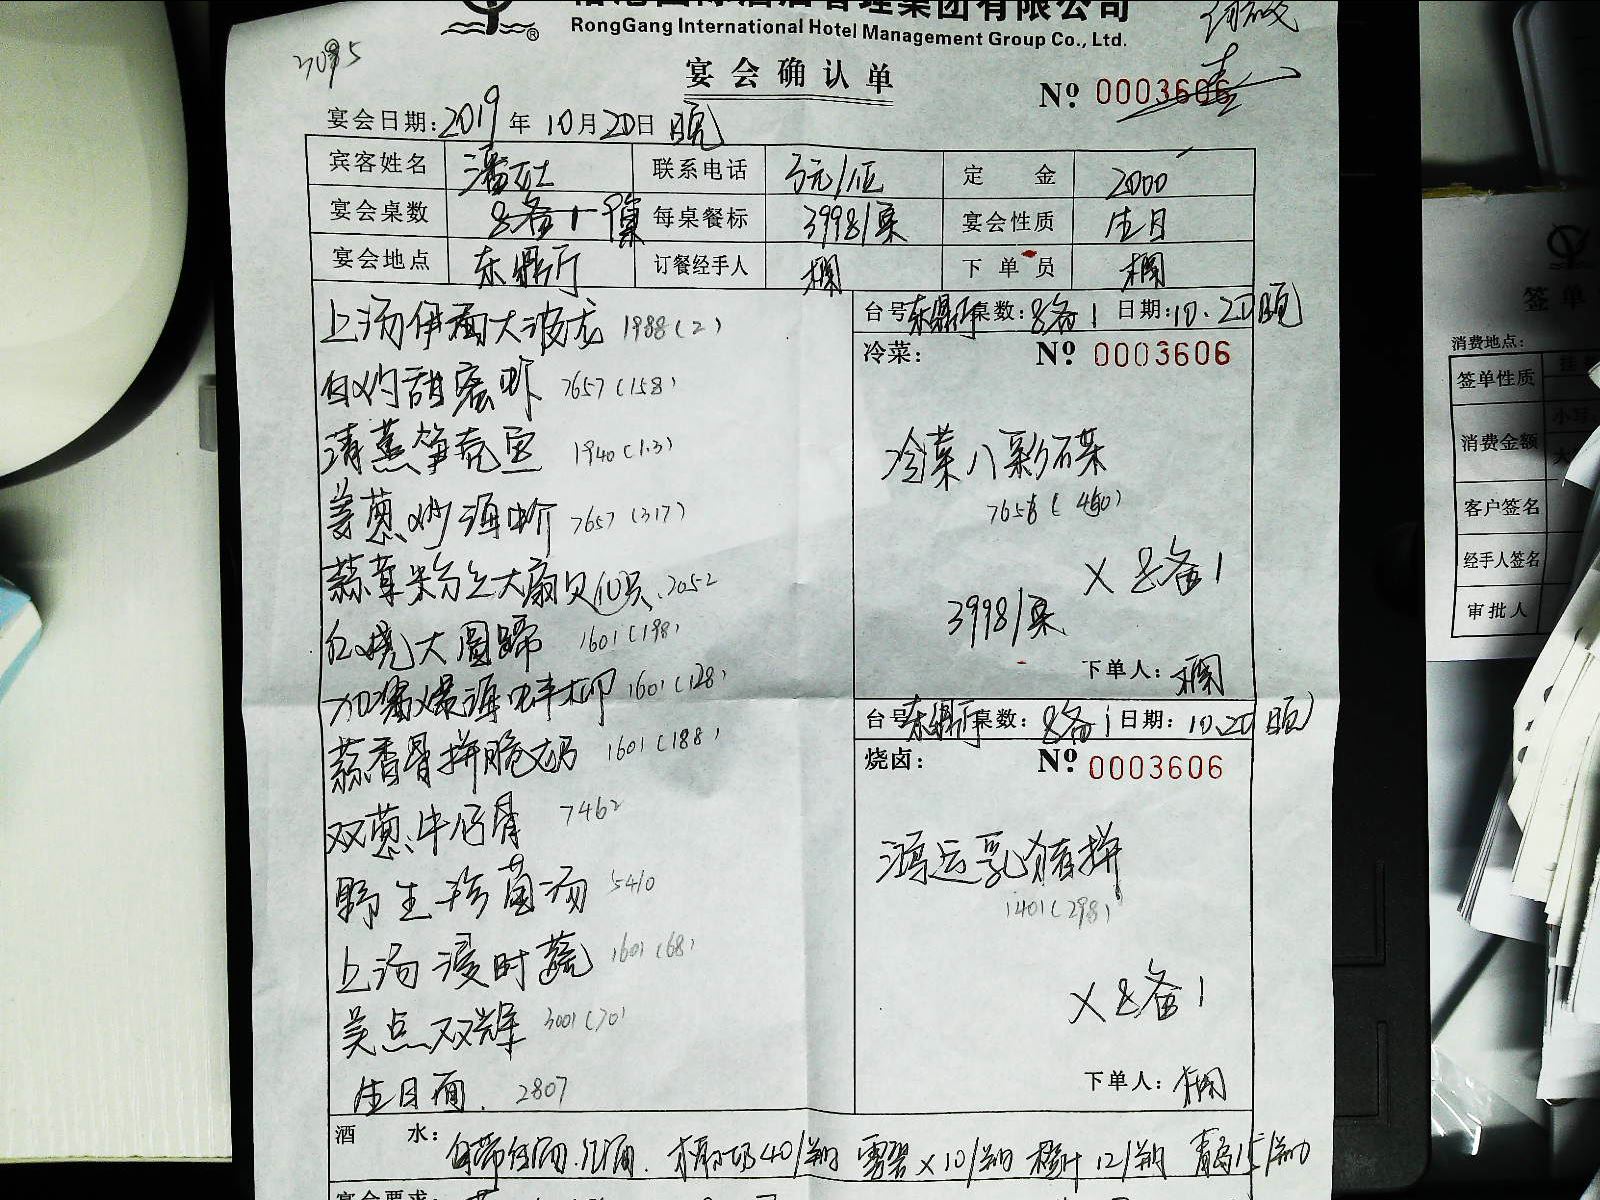 管理集团有限公司
RongGang International Hotel Management Group Co., Ltd.
宴会确认单
№ 0003606
宴会日期:2019年10月20日 晚
宾客姓名 潘女士 联系电话 3元/位 定 金 2000
宴会桌数 8备1 每桌餐标 3998/桌 宴会性质 生日
宴会地点 东鼎厅 订餐经手人 下单员
上汤伊面大波龙 1988(2)
白灼甜蜜虾 7657(158)
清蒸笋壳鱼 1940(1.3)
姜葱炒海中介 7657(317)
蒜茸粉丝大扇贝(10只) 2052
红烧大圆蹄 1601(198)
爆海蚌柳 1601(128)
蒜香骨拼脆奶 1601(188)
双葱牛仔骨 7462
野生珍菌汤 5410
上汤浸时蔬 1601(68)
美点双辉 3001(70)
生日面. 2807
台号:东鼎厅 桌数:8备1 日期:10.20晚
冷菜: № 0003606
冷菜八彩碟
3998/桌 × 8备1
下单人:
台号:东鼎厅 桌数:8备1 日期:10.20晚
烧卤: № 0003606
鸿运乳猪拼
1401(298)
× 8备1
下单人:
酒 水: 自带 40/ 雪碧×10/ 橙汁 12/ 青岛15/
宴会要求:
签单
消费地点:
签单性质 挂
消费金额 小写
大
客户签名
经手人签名
审批人